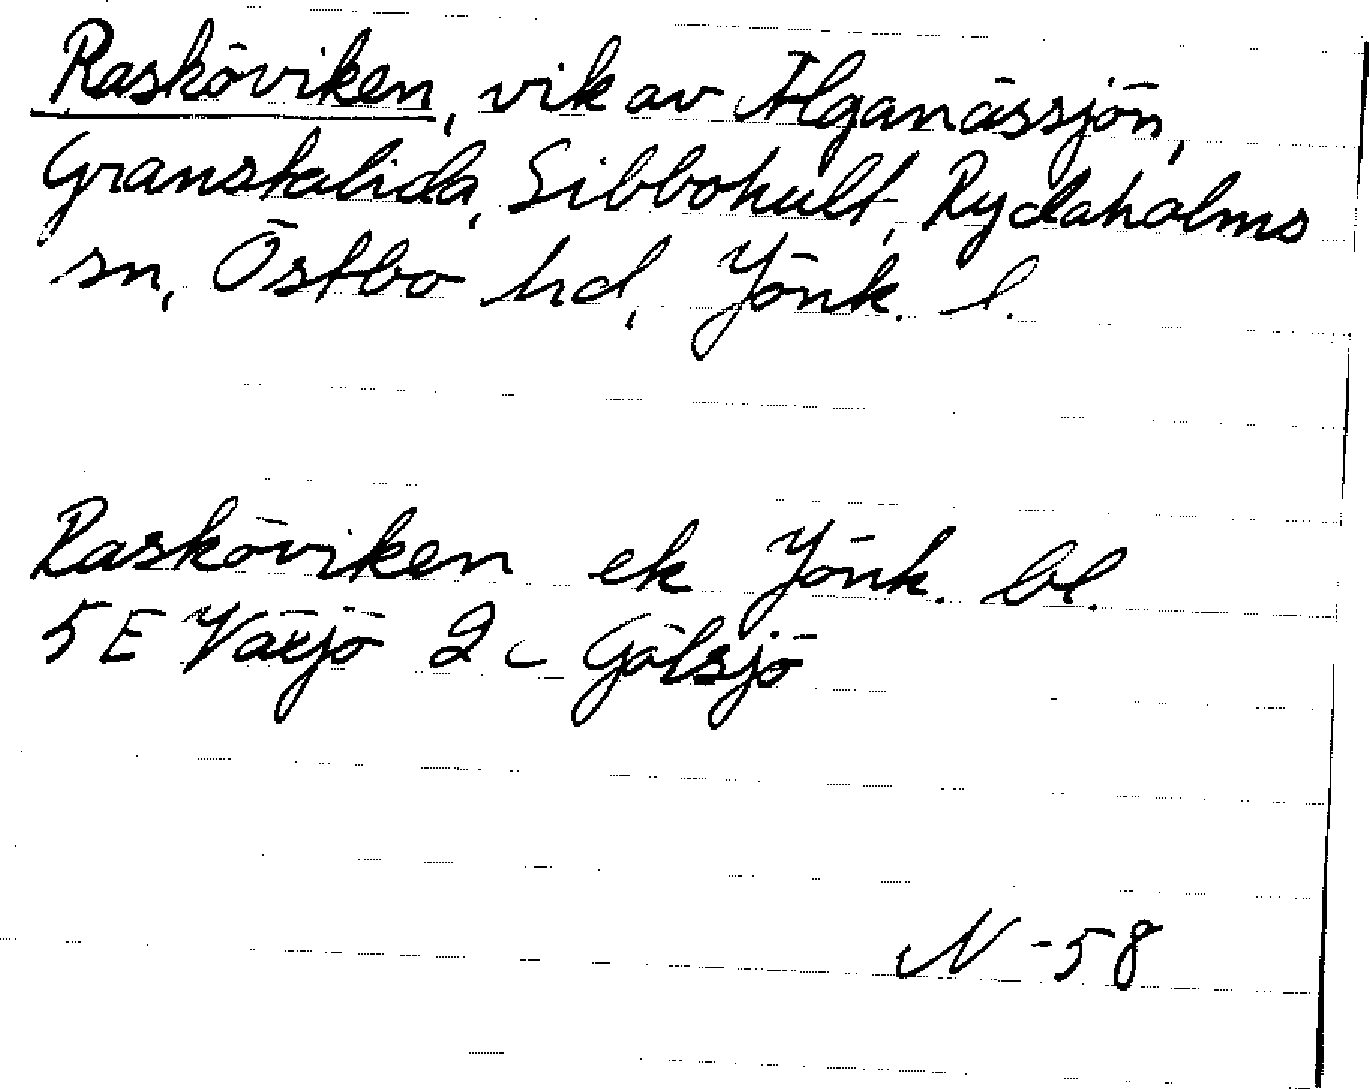 Rasköviken, vik av Älganässjön,
Granstalida, Sibbohult, Rydaholms
sn, Östbo hd, Jönk. l.
Rasköviken ek Jönk. bl.
5 E Växjö 2 c Gölsjö
N -58